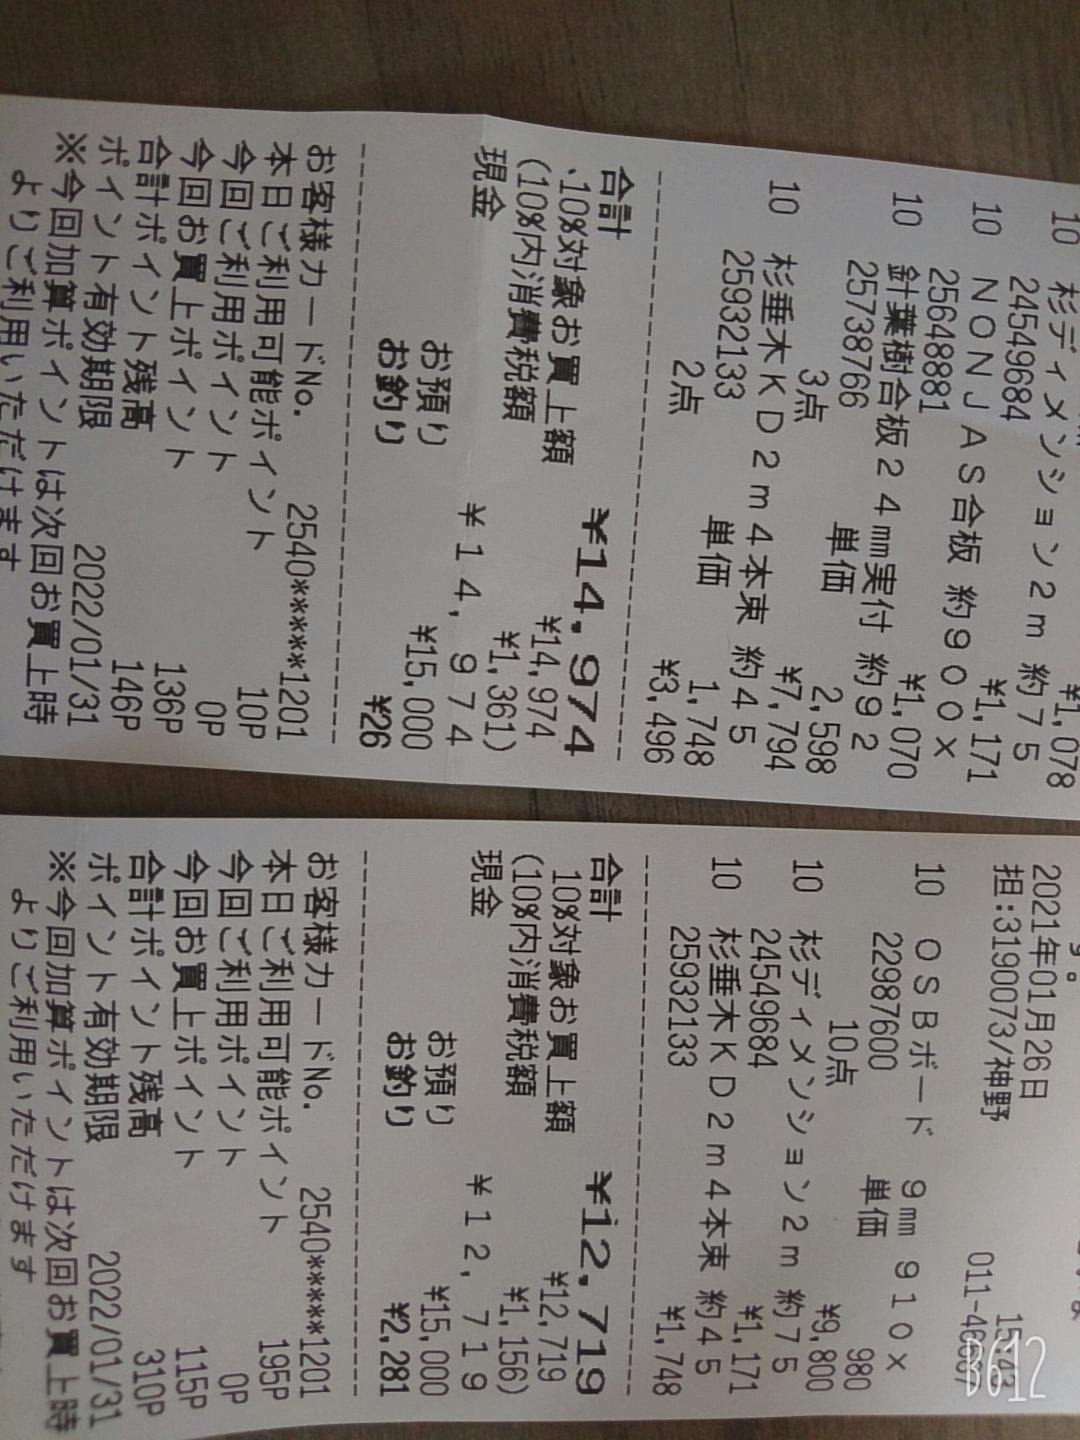 ¥1,078
10 杉ディメンション2m 約75
24549684 ¥1,171
10 NONJAS合板 約900×
25648881 ¥1,070
10 針葉樹合板24mm実付 約92
25738766 単価 2,598
3点 ¥7,794
10 杉垂木KD2m4本束 約45
25932133 単価 1,748
2点 ¥3,496
合計 ¥14,974
10%対象お買上額 ¥14,974
(10%内消費税額 ¥1,361)
現金 ¥14,974
お預り ¥15,000
お釣り ¥26
お客様カードNo. 2540*****1201
本日ご利用可能ポイント 10P
今回ご利用ポイント 0P
今回お買上ポイント 136P
合計ポイント残高 146P
ポイント有効期限 2022/01/31
※今回加算ポイントは次回お買上時
よりご利用いただけます
す。
2021年01月26日 15:43
担:3190073/神野
10 OSBボード 9mm 910×
22987600 単価 980
10点 ¥9,800
10 杉ディメンション2m 約75
24549684 ¥1,171
10 杉垂木KD2m4本束 約45
25932133 ¥1,748
合計 ¥12,719
10%対象お買上額 ¥12,719
(10%内消費税額 ¥1,156)
現金 ¥12,719
お預り ¥15,000
お釣り ¥2,281
お客様カードNo. 2540*****1201
本日ご利用可能ポイント 195P
今回ご利用ポイント 0P
今回お買上ポイント 115P
合計ポイント残高 310P
ポイント有効期限 2022/01/31
※今回加算ポイントは次回お買上時
よりご利用いただけます
B612